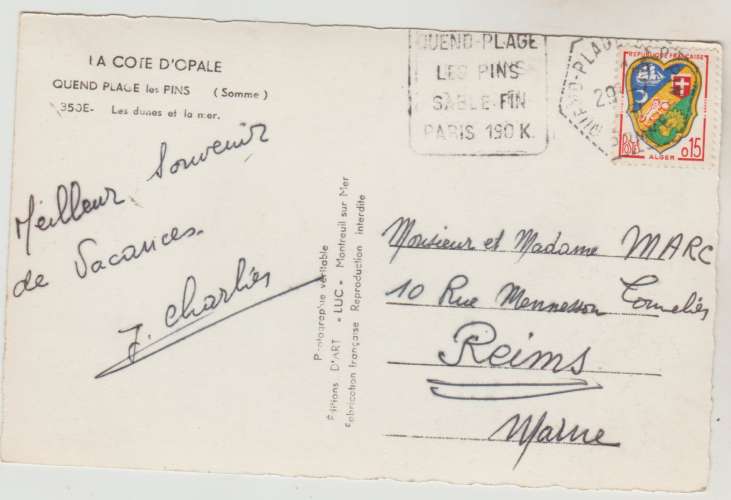 LA COTE D'OPALE
QUEND PLAGE les PINS (Somme)
350E- Les dunes et la mer.
Meilleur Souvenir
de Vacances
J. Charlier
Photographie véritable
Editions D'ART "LUC" Montreuil sur Mer
Fabrication française Reproduction interdite
QUEND-PLAGE
LES PINS
SABLE-FIN
PARIS 190 K.
QUEND-PLAGE
REPUBLIQUE FRANÇAISE
Postes
0,15
ALGER
Monsieur et Madame MARC
10 Rue Mennesson Tomeliès
Reims
Marne